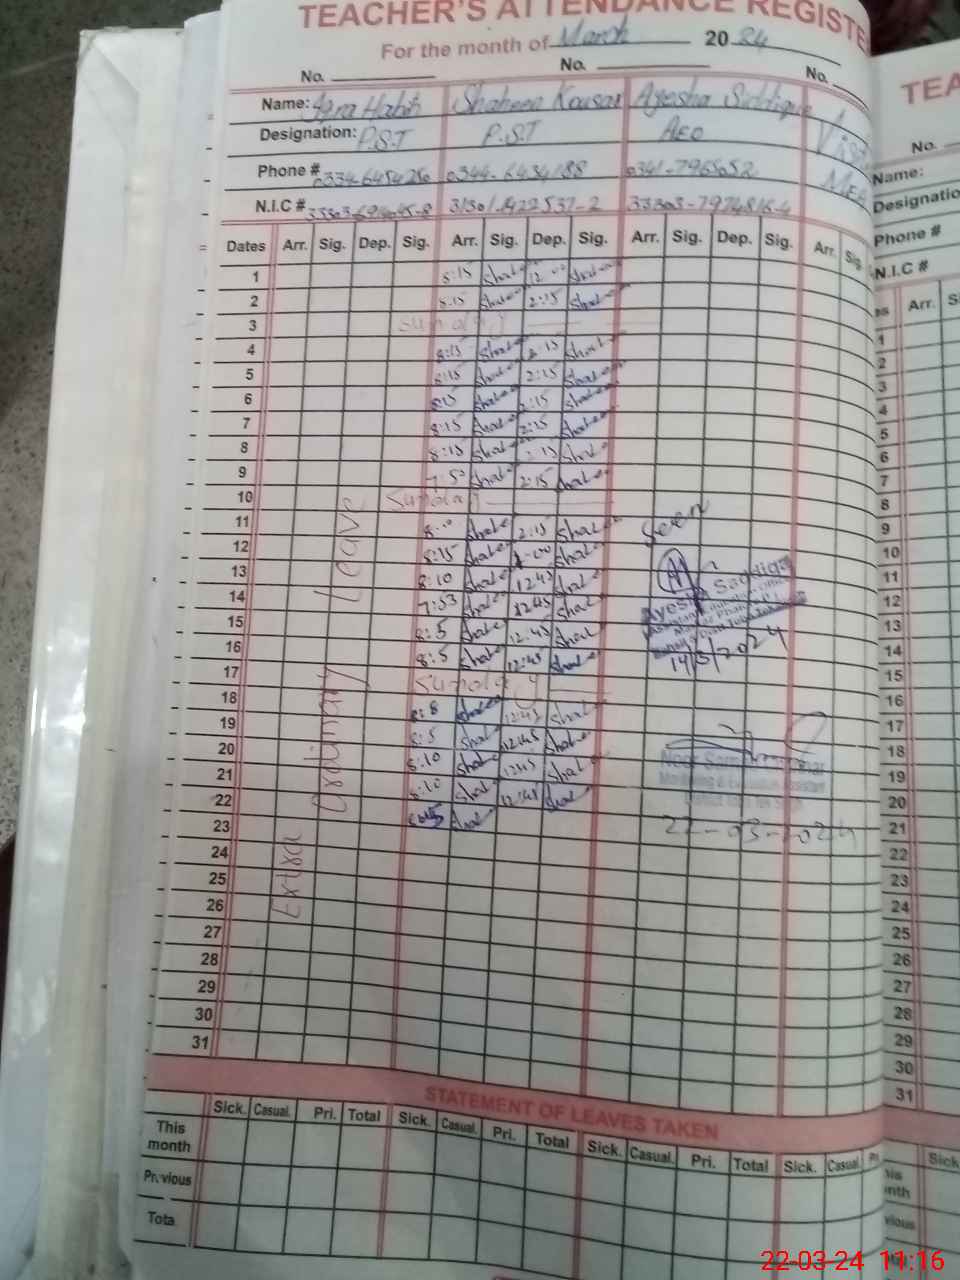 TEACHER'S ATTENDANCE REGISTE
For the month of March 20 24
No. No. No.
Name: Iqra Habib Shaheen Kousar Ayesha Siddique
Designation: P.S.T P.S.T AEO
Phone # 0344-6434188 0341-7965052
N.I.C # 31301-1422537-2 33303-7974816-4
Dates Arr. Sig. Dep. Sig. Arr. Sig. Dep. Sig. Arr. Sig. Dep. Sig. Arr. Sig.
1 8:15 Shaheen
2 8:15 Shaheen 2:15 Shaheen
3 Sunday
4 8:15 Shaheen 2:15 Shaheen
5 8:15 Shaheen 2:15 Shaheen
6 8:15 Shaheen 2:15 Shaheen
7 8:15 Shaheen 2:15 Shaheen
8 8:15 Shaheen 2:15 Shaheen
9 7:50 Shaheen 2:15 Shaheen
10 Sunday
11 Shaheen 2:15 Shaheen
12 8:15 Shaheen Shaheen
13 8:10 Shaheen 12:45 Shaheen
14 7:53 Shaheen 12:45 Shaheen
15 8:5 Shaheen 12:45 Shaheen
16 8:5 Shaheen 12:45 Shaheen
17 Sunday
18 8:8 Shaheen 12:45 Shaheen
19 8:5 Shaheen 12:45 Shaheen
20 8:10 Shaheen 12:45 Shaheen
21 8:10 Shaheen 12:45 Shaheen
22 Shaheen
23
24
25
26
27
28
29
30
31
Extra Ordinary Leave
Seen
Ayesha Saddiqa
14/3/2024
Monitoring & Evaluation Assistant
22-03-2024
STATEMENT OF LEAVES TAKEN
Sick. Casual. Pri. Total Sick. Casual. Pri. Total Sick. Casual. Pri. Total Sick. Casual.
This month
Previous
Tota
TEA
No.
Name:
Designatio
Phone #
N.I.C #
Arr. S
1
2
3
4
5
6
7
8
9
10
11
12
13
14
15
16
17
18
19
20
21
22
23
24
25
26
27
28
29
30
31
Sick
22-03-24 11:16